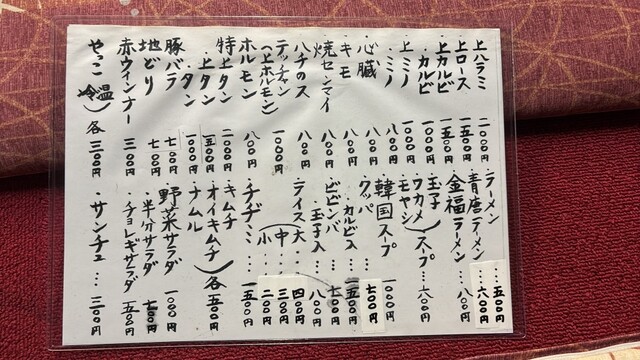 上ハラミ 二〇〇〇円
上ロース 一五〇〇円
上カルビ 一五〇〇円
・カルビ 一〇〇〇円
上ミノ 一〇〇〇円
・ミノ 八〇〇円
・心臓 八〇〇円
・キモ 八〇〇円
焼センマイ 八〇〇円
ハチのス 八〇〇円
テッチャン(上ホルモン) 一〇〇〇円
ホルモン 八〇〇円
特上タン 二〇〇〇円
・上タン 一五〇〇円
・タン 一〇〇〇円
豚バラ 七〇〇円
地どり 七〇〇円
赤ウィンナー 三〇〇円
やっこ(冷温) 各三〇〇円
・ラーメン…五〇〇円
青唐ラーメン…六〇〇円
金福ラーメン…八〇〇円
玉子
ワカメ スープ…六〇〇円
モヤシ
韓国スープ 一〇〇〇円
クッパ 七〇〇円
・カルビ入…一五〇〇円
ビビンバ…七〇〇円
・玉子入…八〇〇円
ライス 大…四〇〇円
中…三〇〇円
小…二〇〇円
チヂミ…一五〇〇円
キムチ
オイキムチ 各五〇〇円
ナムル
野菜サラダ 一〇〇〇円
・半分サラダ 七〇〇円
・チョレギサラダ 五〇〇円
・サンチュ…三〇〇円